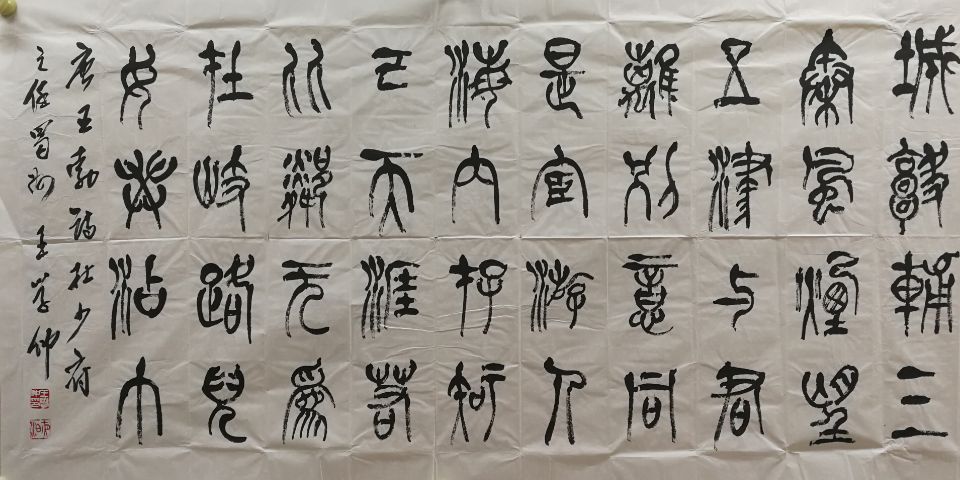 城闕輔三
秦風煙望
五津与君
離別意同
是宦游人
海内存知
己天涯若
比鄰无爲
在岐路兒
女共沾巾
唐王勃詩杜少府
之任蜀州 王学仲